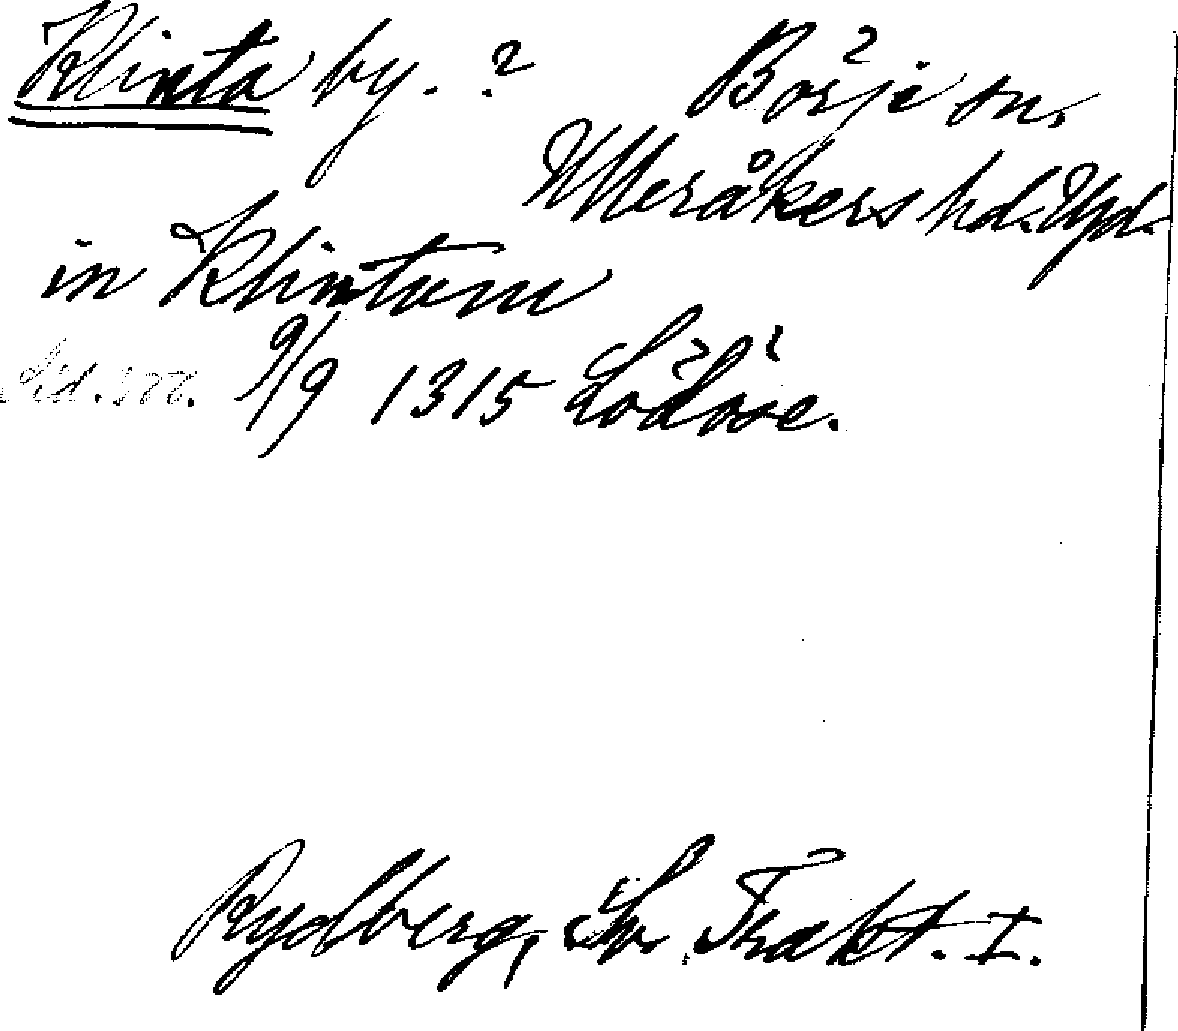 Klinta by. ? Börje sn.
Ulleråkers hd. Upl.
in Klintum
9/9 1315 Lödöse.
Rydberg, Sv. Trakt. I.